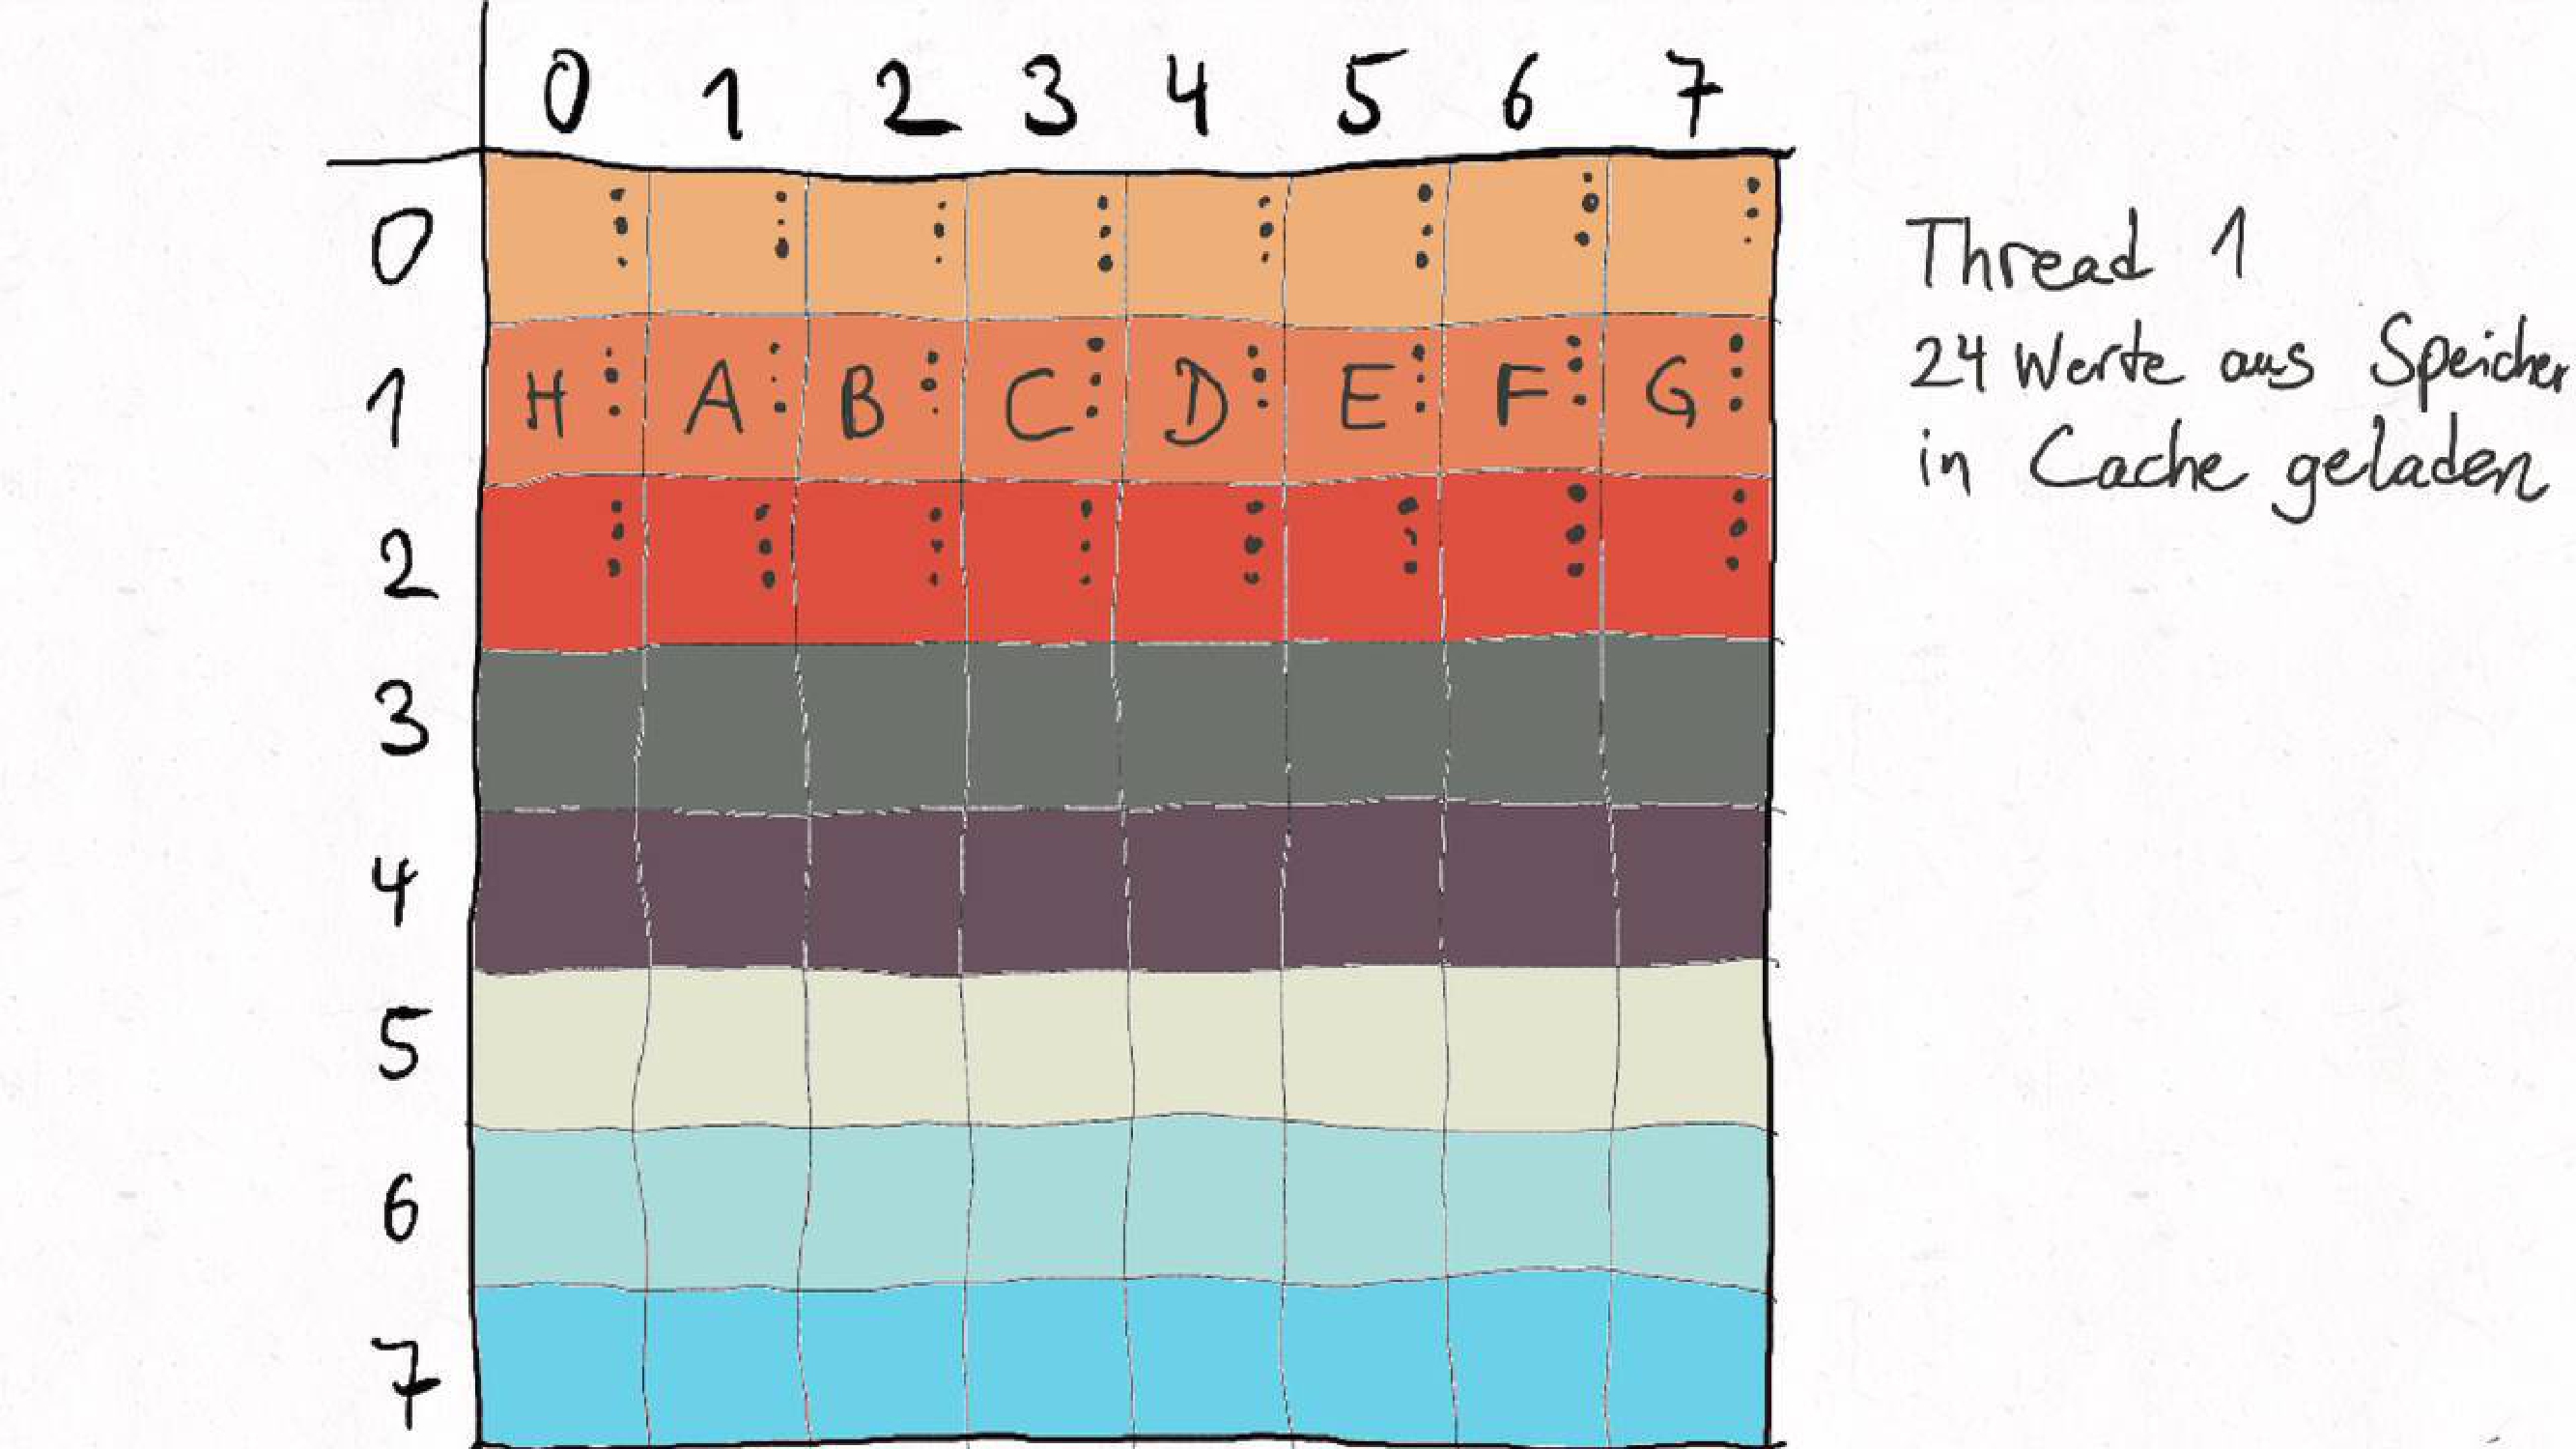 0 1 2 3 4 5 6 7
0
1 H A B C D E F G
2
3
4
5
6
7
Thread 1
24 Werte aus Speicher
in Cache geladen